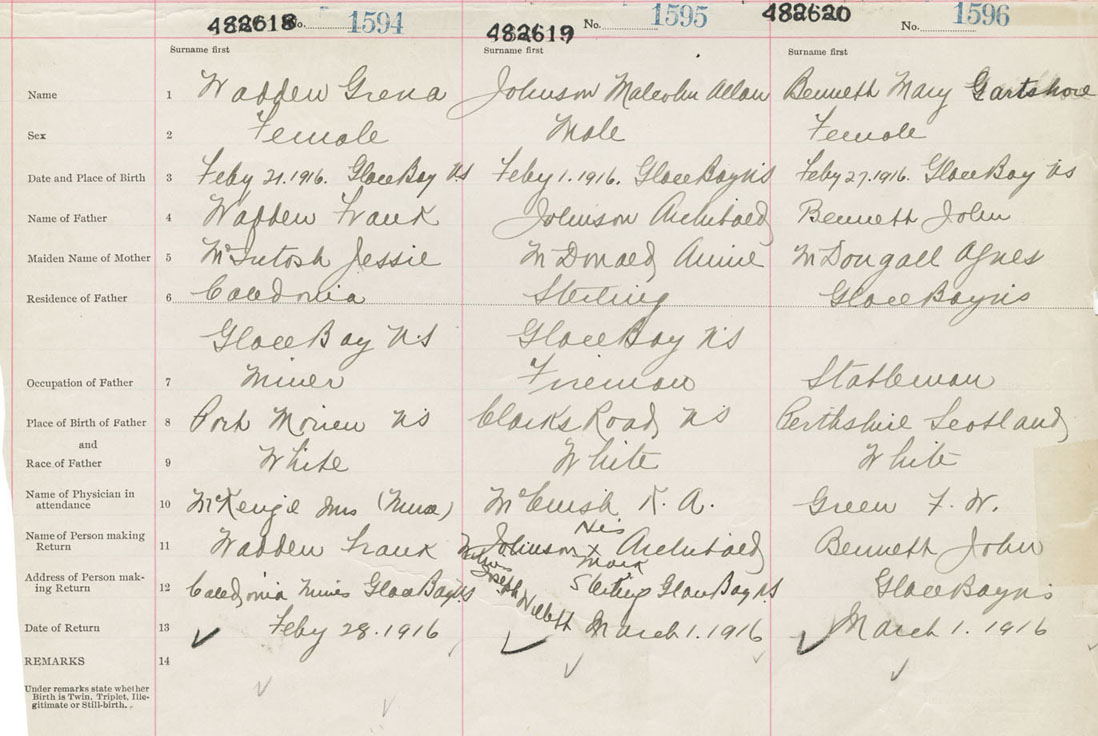 482618 No. 1594 482619 No. 1595 482620 No. 1596
Surname first Surname first Surname first
Name 1 Wadden Grena Johnson Malcolm Allan Benneth Mary Gartshore
Sex 2 Female Male Female
Date and Place of Birth 3 Feby 21.1916. Glace Bay NS Feby 1.1916. Glace Bay NS Feby 27.1916. Glace Bay NS
Name of Father 4 Wadden Frank Johnson Archibald Benneth John
Maiden Name of Mother 5 McIntosh Jessie McDonald Annie McDougall Agnes
Residence of Father 6 Caledonia Sterling Glace Bay NS
Glace Bay NS Glace Bay NS
Occupation of Father 7 Miner Fireman Stableman
Place of Birth of Father 8 Port Morien NS Clarks Road NS Perthshire Scotland
and
Race of Father 9 White White White
Name of Physician in
attendance 10 McKenzie Mrs (Nurse) McCuish K. A. Green F. W.
Name of Person making
Return 11 Wadden Frank Johnson His X Mark Archibald Benneth John
Address of Person mak-
ing Return 12 Caledonia Mines Glace Bay NS Sterling Glace Bay NS Glace Bay NS
Date of Return 13 Feby 28.1916 March 1.1916 March 1.1916
REMARKS 14
Under remarks state whether
Birth is Twin, Triplet, Ille-
gitimate or Still-birth.